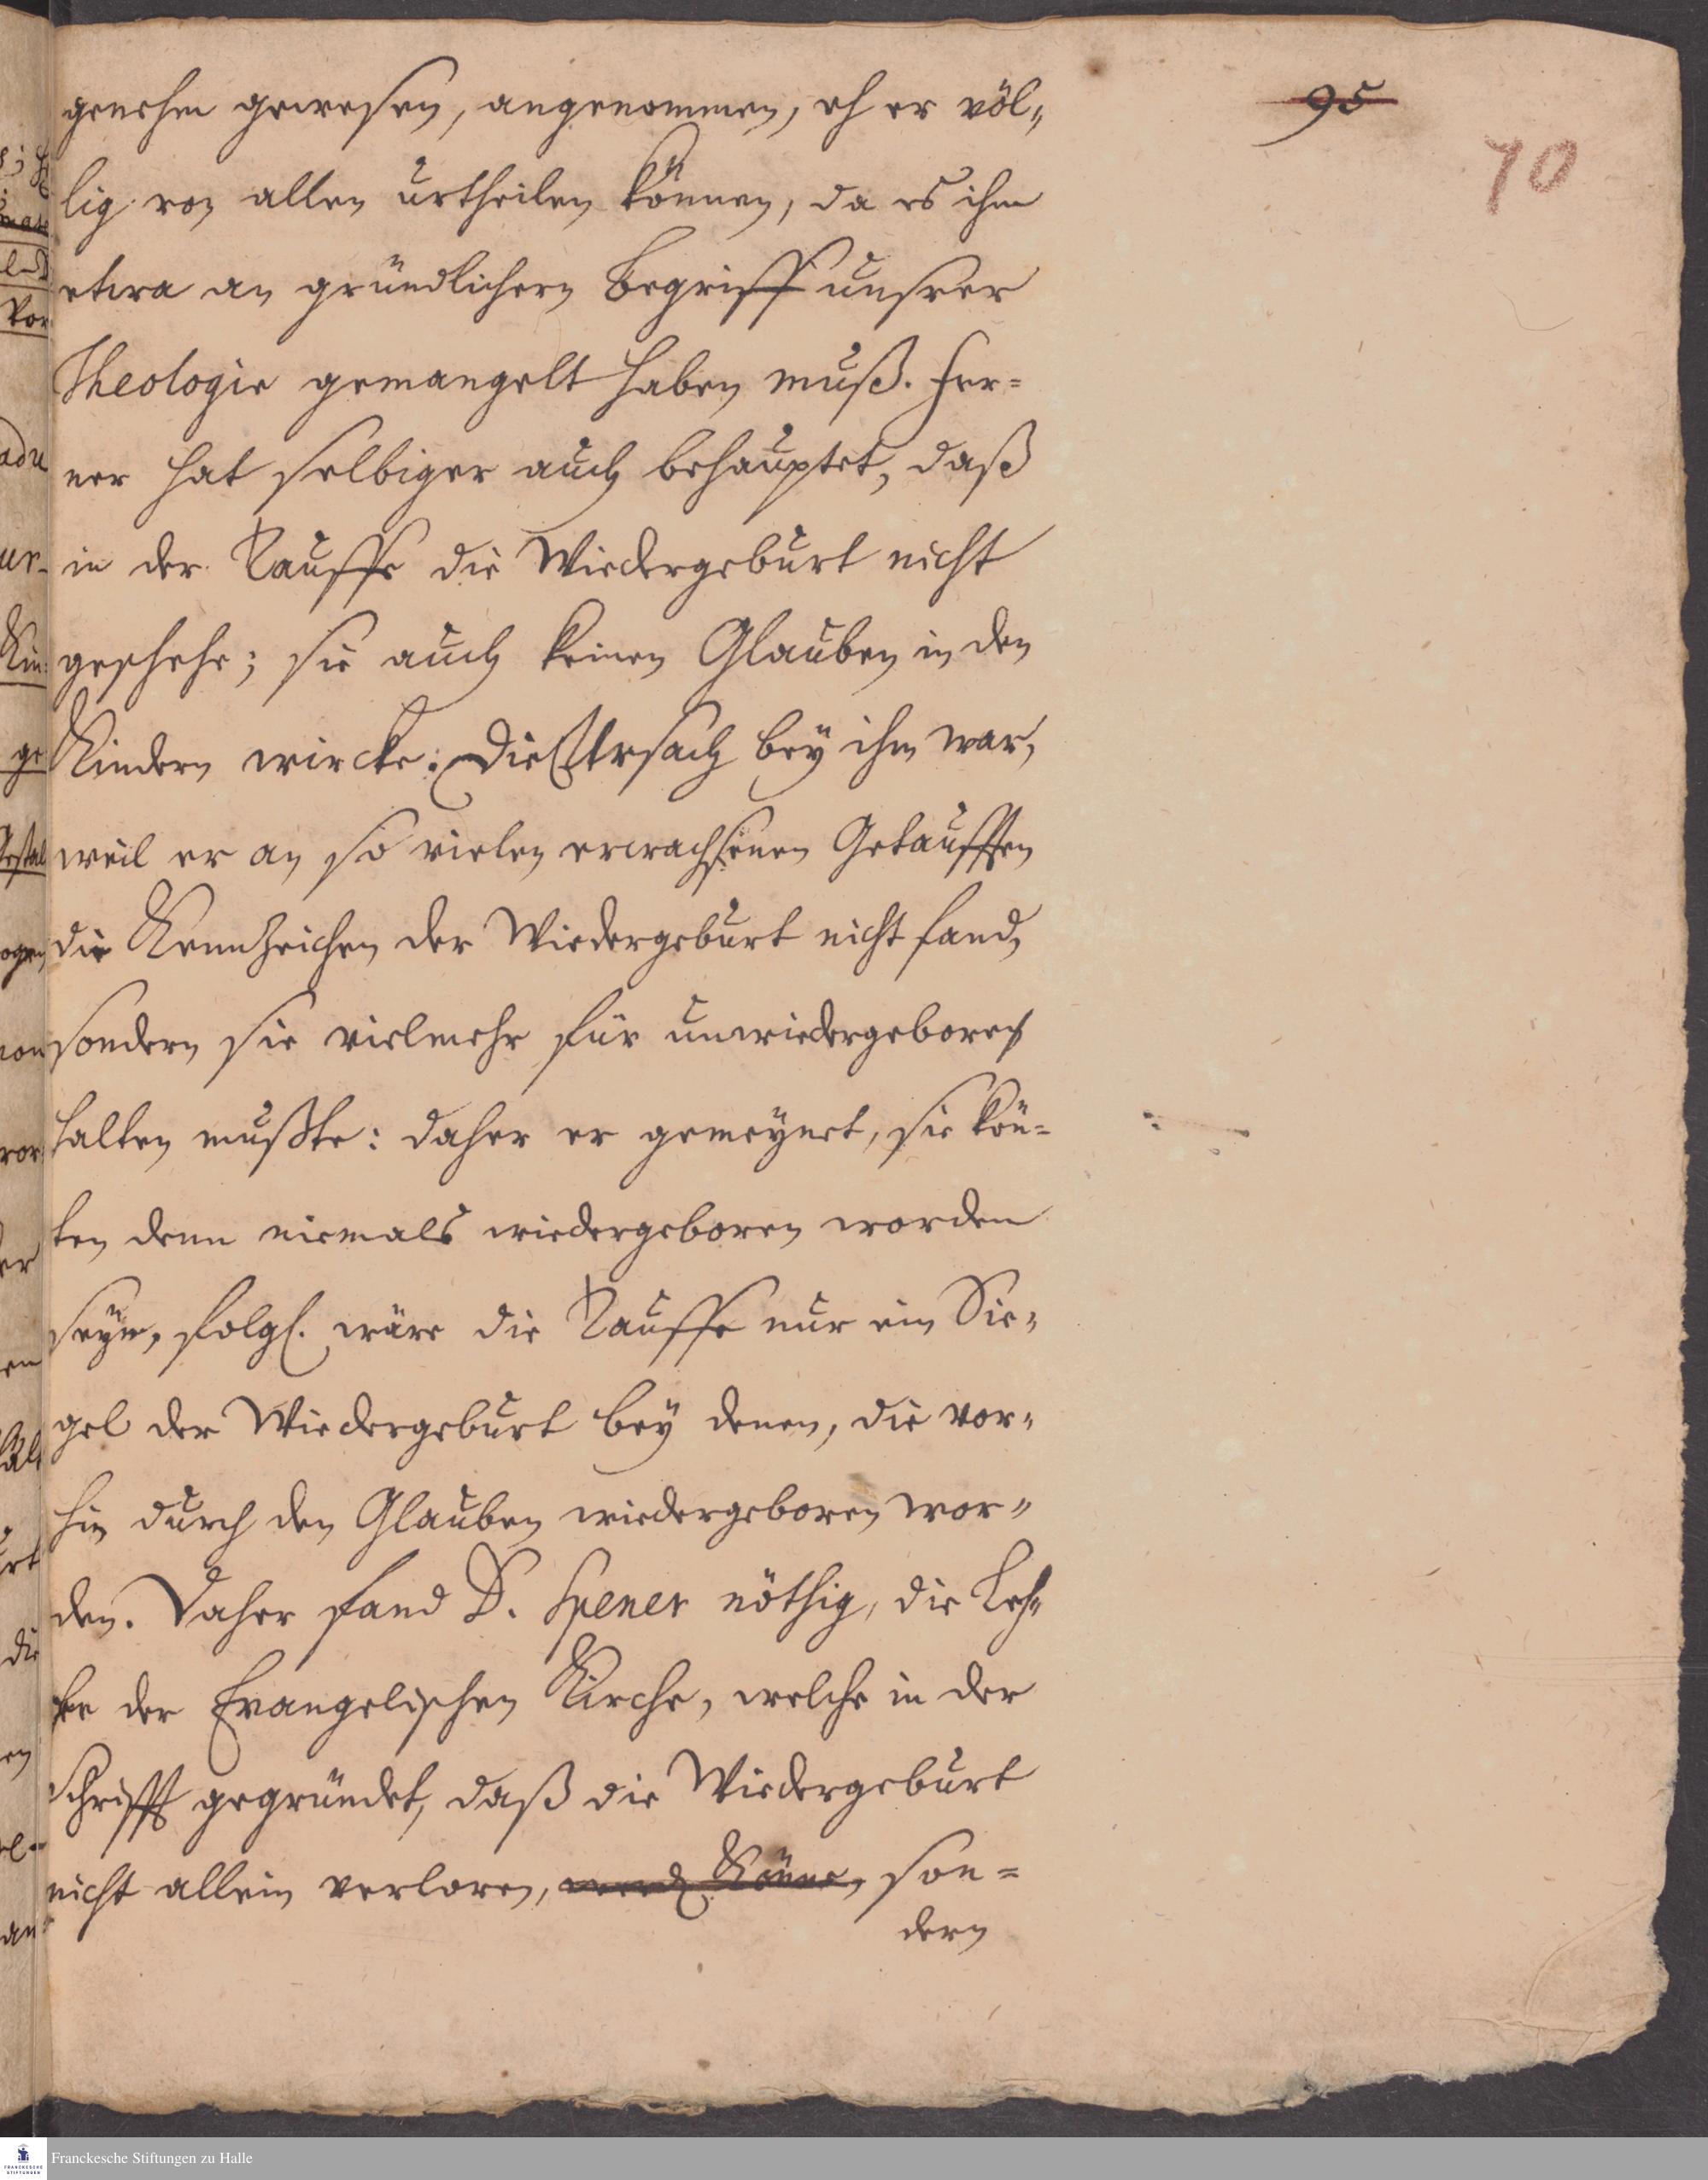 95
70
genehm gewesen, angenommen, eh er völ-
lig von allen urtheilen können, da es ihm
etwa an gründlichern Begriff unsrer
Theologie gemangelt haben muß. Fer=
ner hat selbiger auch behauptet, daß
in der Tauffe die Wiedergeburt nicht
geschehe; sie auch keinen Glauben in den
Kindern wircke: Die Ursach bey ihm war,
weil er an so vielen erwachsenen Getaufften
die Kennzeichen der Wiedergeburt nicht fand,
sondern sie vielmehr für unwiedergeboren
halten mußte: daher er gemeynet, sie kön=
ten denn niemals wiedergeboren worden
seyn, folgl. wäre die Tauffe nur ein Sie-
gel der Wiedergeburt bey denen, die vor-
hin durch den Glauben wiedergeboren wor-
den. Daher fand D. Spener nöthig, die Leh-
re der Evangelischen Kirche, welche in der
Schrifft gegründet, daß die Wiedergeburt
nicht allein verloren, werden könne, son=
dern
Franckesche Stiftungen zu Halle